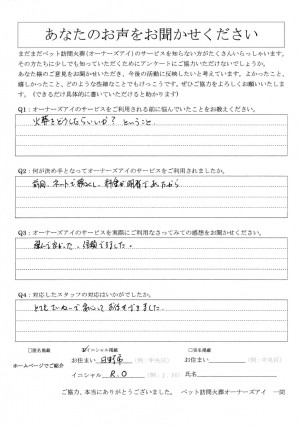 あなたのお声をお聞かせください
まだまだペット訪問火葬(オーナーズアイ)のサービスを知らない方がたくさんいらっしゃいます。
その方たちに少しでも知っていただくためにアンケートにご協力いただけないでしょうか。
あなた様のご意見をお聞かせいただき、今後の活動に反映したいと考えています。よかったこと、
嬉しかったこと、どのような些細なことでもけっこうです。ぜひご協力をよろしくお願いいたしま
す。(できるだけ具体的に書いていただけると助かります)
Q1:オーナーズアイのサービスをご利用される前に悩んでいたことをお教えください。
火葬をどうしたらいいか? ということ
Q2:何が決め手となってオーナーズアイのサービスをご利用されましたか。
前回、ネットで検索し、料金が明确であったから
Q3:オーナーズアイのサービスを実際にご利用なさってみての感想をお聞かせください。
頼んで良かった。信頼できました。
Q4:対応したスタッフの対応はいかがでしたか。
とてもていねいで安心しておまかせできました。
□匿名掲載 ☑イニシャル掲載 □実名掲載
お住まい 日野市 (例:中央区) お住まい (例:中央区)
ホームページでご紹介
イニシャル R.O 氏名
ご協力、本当にありがとうございました。 ペット訪問火葬オーナーズアイ 一同